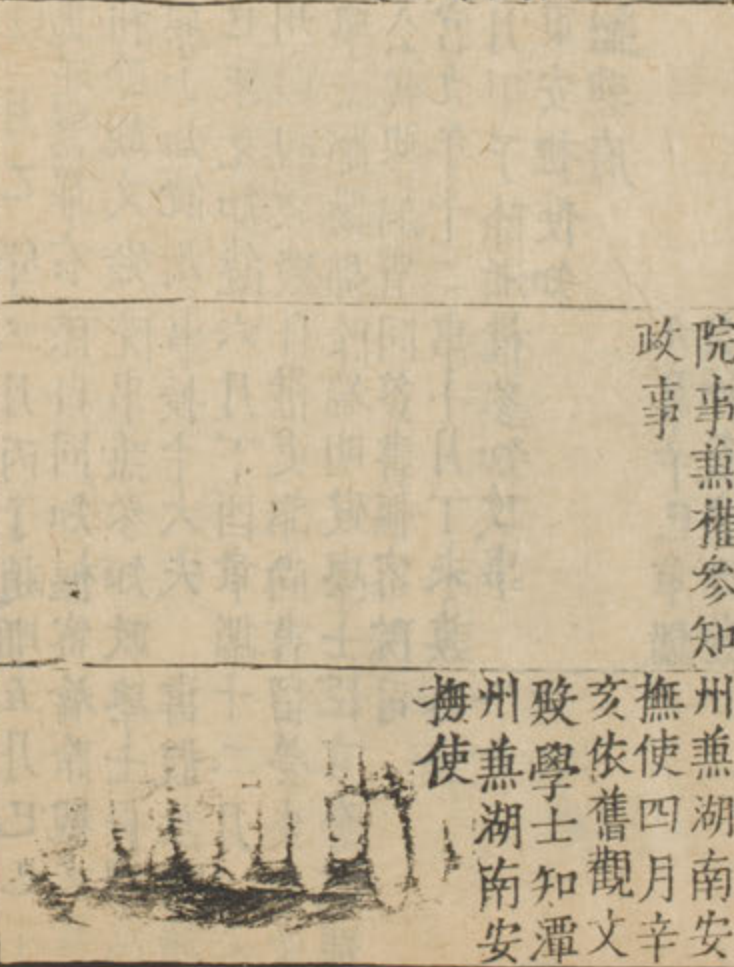 院事兼權參知
政事
州兼湖南安
撫使四月辛
亥依舊觀文
殿學士知潭
州兼湖南安
撫使